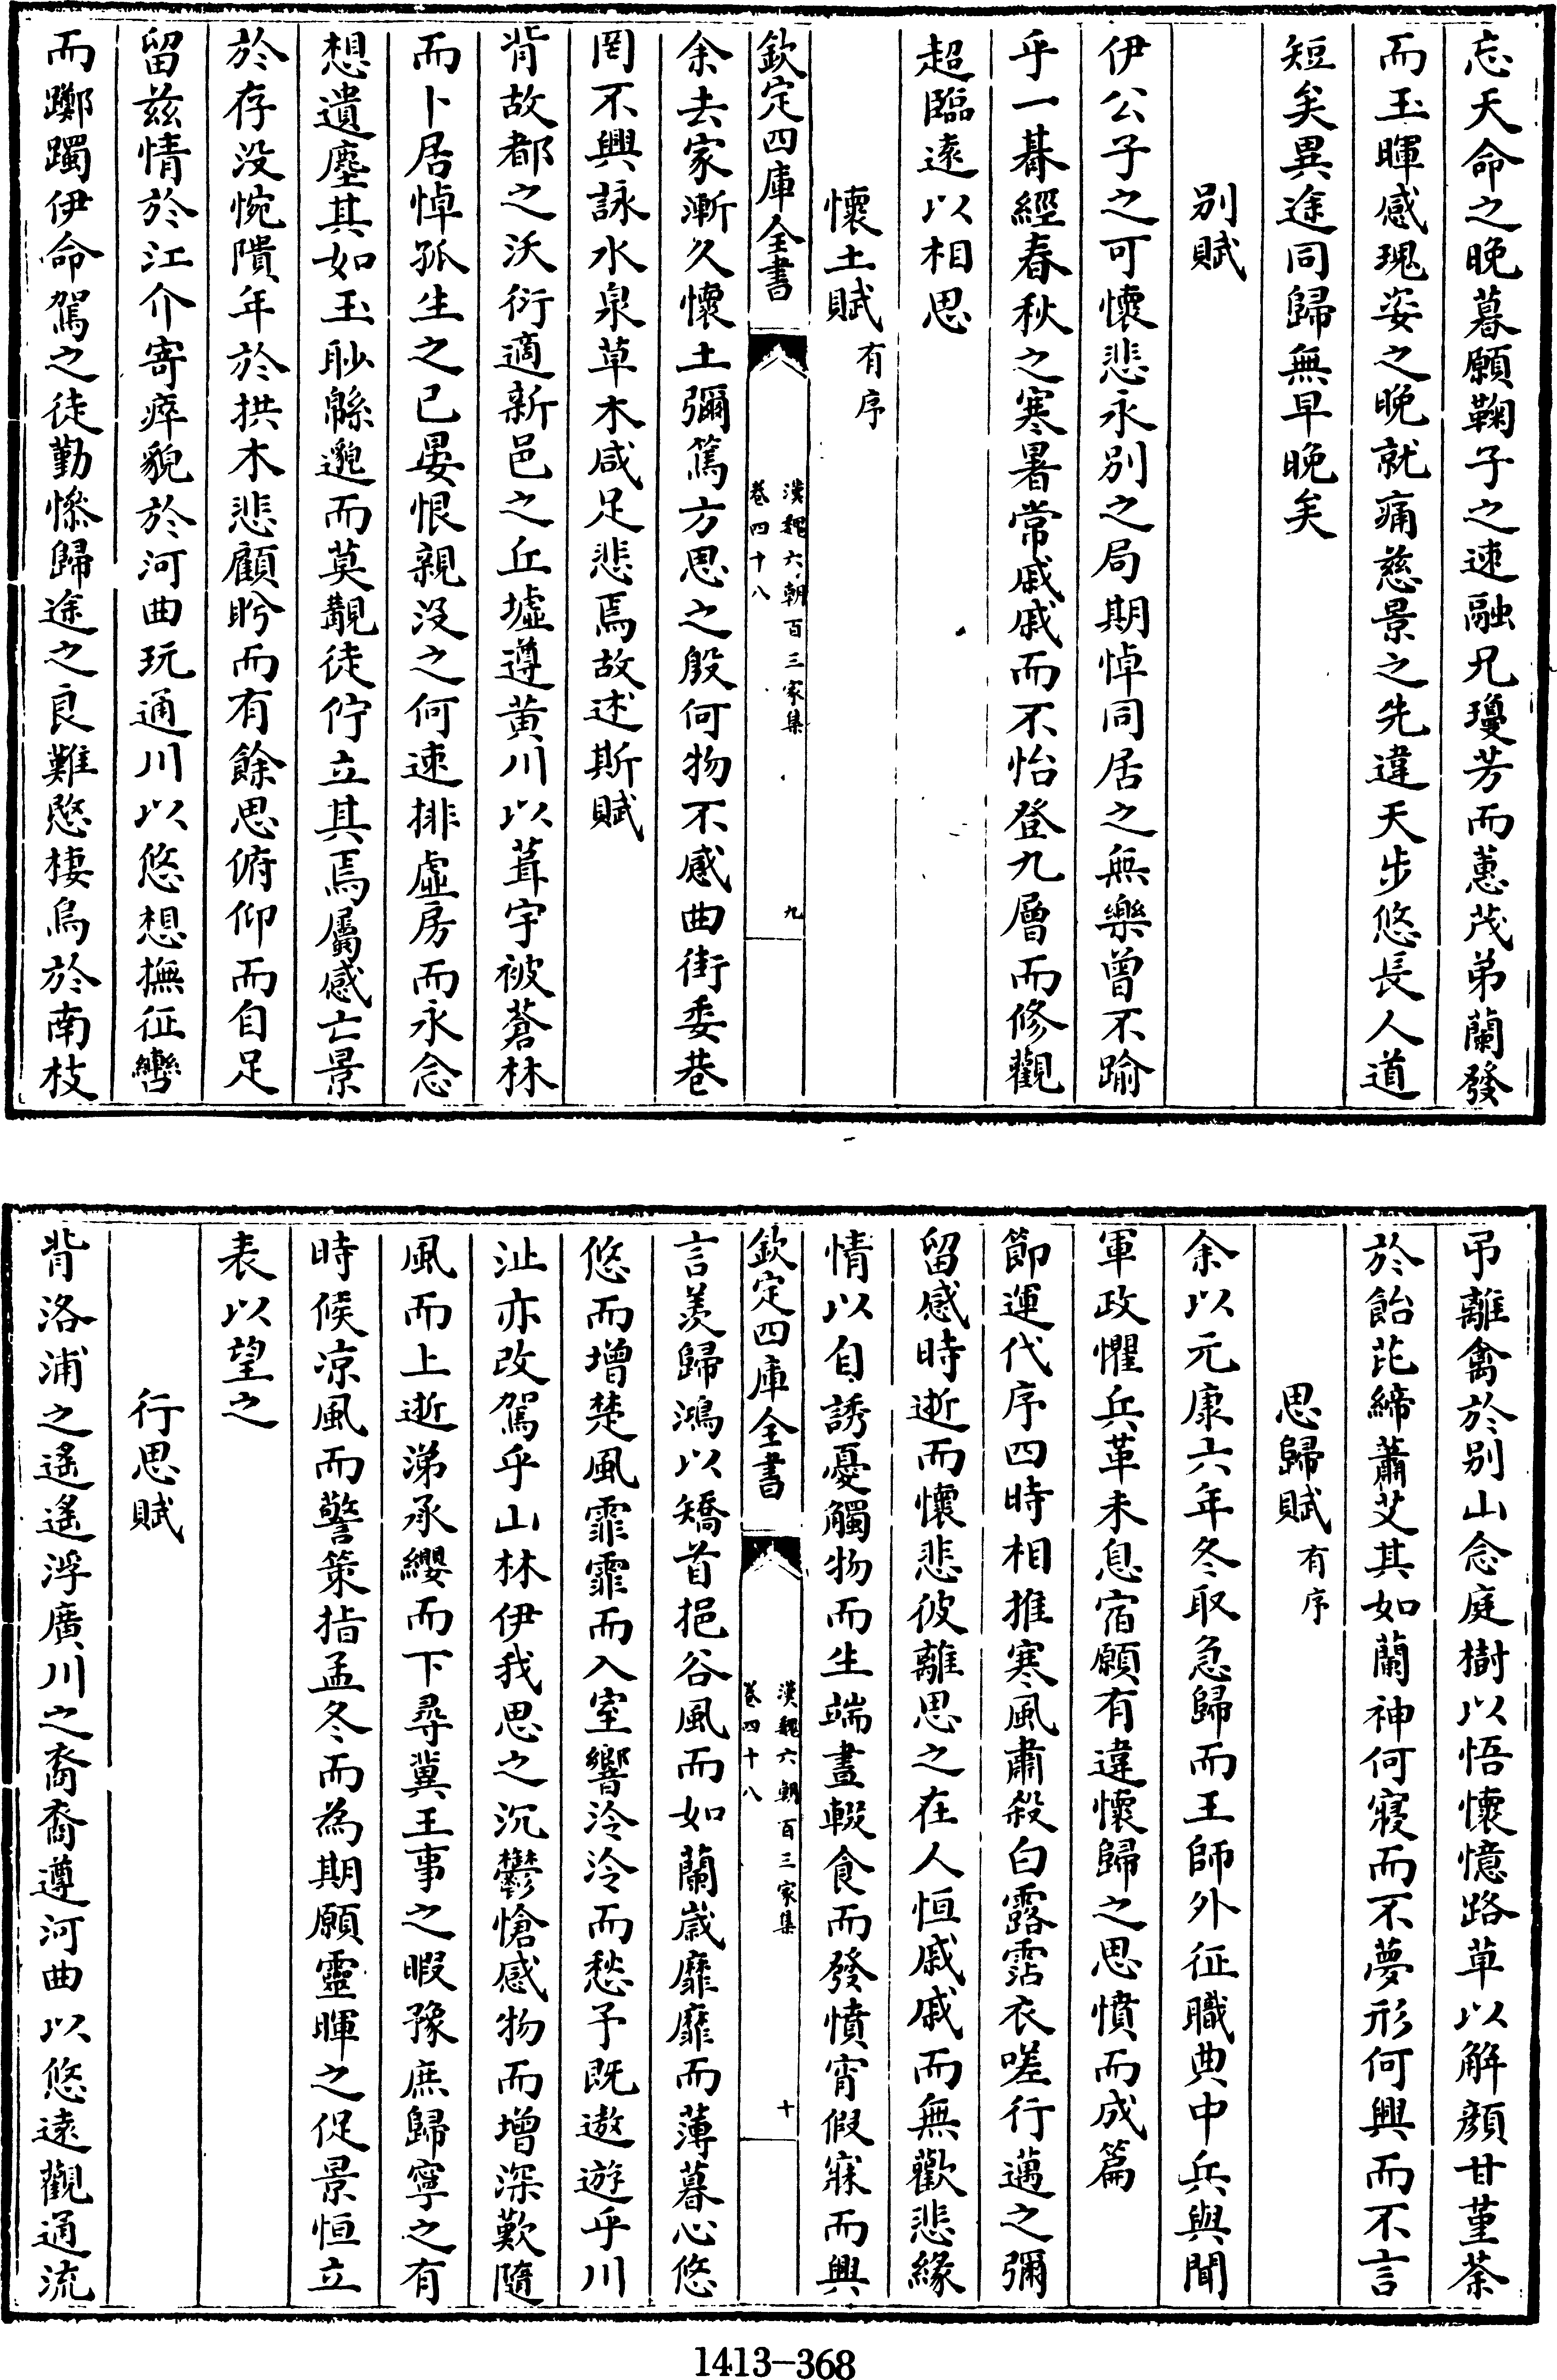 忘天命之晚暮願鞠子之速融兄瓊芳而蕙茂弟蘭發
而玉暉感瑰姿之晚就痛慈景之先違天步悠長人道
短矣異途同歸無早晚矣
別賦
伊公子之可懷悲永別之局期悼同居之無樂曾不踰
乎一朞經春秋之寒暑常戚戚而不怡登九層而修觀
超臨遠以相思
懷土賦有序
欽定四庫全書
漢魏六朝百三家集
卷四十八
九
余去家漸久懷土彌篤方思之殷何物不感曲街委巷
罔不興詠水泉草木咸足悲焉故述斯賦
背故都之沃衍適新邑之丘墟遵黃川以葺宇被蒼林
而卜居悼孤生之已晏恨親沒之何速排虛房而永念
想遺塵其如玉眇緜邈而莫覯徒佇立其焉屬感亡景
於存没惋隤年於拱木悲顧眄而有餘思俯仰而自足
留兹情於江介寄瘁貌於河曲玩通川以悠想撫征轡
而躑躅伊命駕之徒勤慘歸途之良難愍棲鳥於南枝
弔離禽於別山念庭樹以悟懷憶路草以解顔甘堇荼
於飴芘締蕭艾其如蘭神何寢而不夢形何興而不言
思歸賦有序
余以元康六年冬取急歸而王師外征職典中兵與聞
軍政懼兵革未息宿願有違懷歸之思憤而成篇
節運代序四時相推寒風肅殺白露霑衣嗟行邁之彌
留感時逝而懷悲彼離思之在人恒戚戚而無歡悲緣
情以自誘憂觸物而生端晝輟食而發憤宵假寐而興
欽定四庫全書
漢魏六朝百三家集
卷四十八
十
言羨歸鴻以矯首挹谷風而如蘭歲靡靡而薄暮心悠
悠而增楚風霏霏而入室響泠泠而愁予既遨遊乎川
沚亦改駕乎山林伊我思之沉鬱愴感物而增深歎隨
風而上逝涕承纓而下尋冀王事之暇豫庶歸寧之有
時候凉風而警策指孟冬而為期願靈暉之促景恒立
表以望之
行思賦
背洛浦之遙遙浮廣川之裔裔遵河曲以悠遠觀通流
1413-368